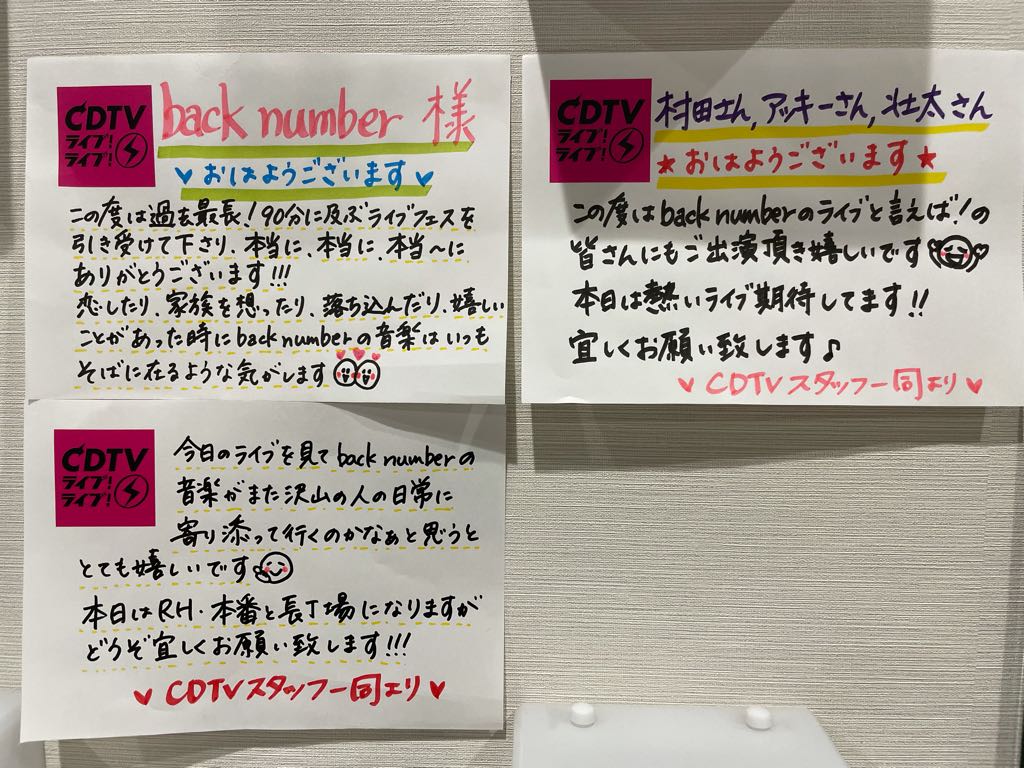 CDTV
ライブ!
ライブ!
back number 様
おはようございます
この度は過去最長!90分に及ぶライブフェスを
引き受けて下さり、本当に、本当に、本当〜に
ありがとうございます!!!
恋したり、家族を想ったり、落ち込んだり、嬉しい
ことがあった時にback numberの音楽はいつも
そばに在るような気がします
CDTV
ライブ!
ライブ!
今日のライブを見てback numberの
音楽がまた沢山の人の日常に
寄り添って行くのかなぁと思うと
とても嬉しいです
本日はRH・本番と長丁場になりますが
どうぞ宜しくお願い致します!!!
♥ CDTVスタッフ一同より ♥
CDTV
ライブ!
ライブ!
村田さん,アッキーさん,壮太さん
★おはようございます★
この度はback numberのライブと言えば!の
皆さんにもご出演頂き嬉しいです
本日は熱いライブ期待してます!!
宜しくお願い致します♪
♥ CDTVスタッフ一同より ♥